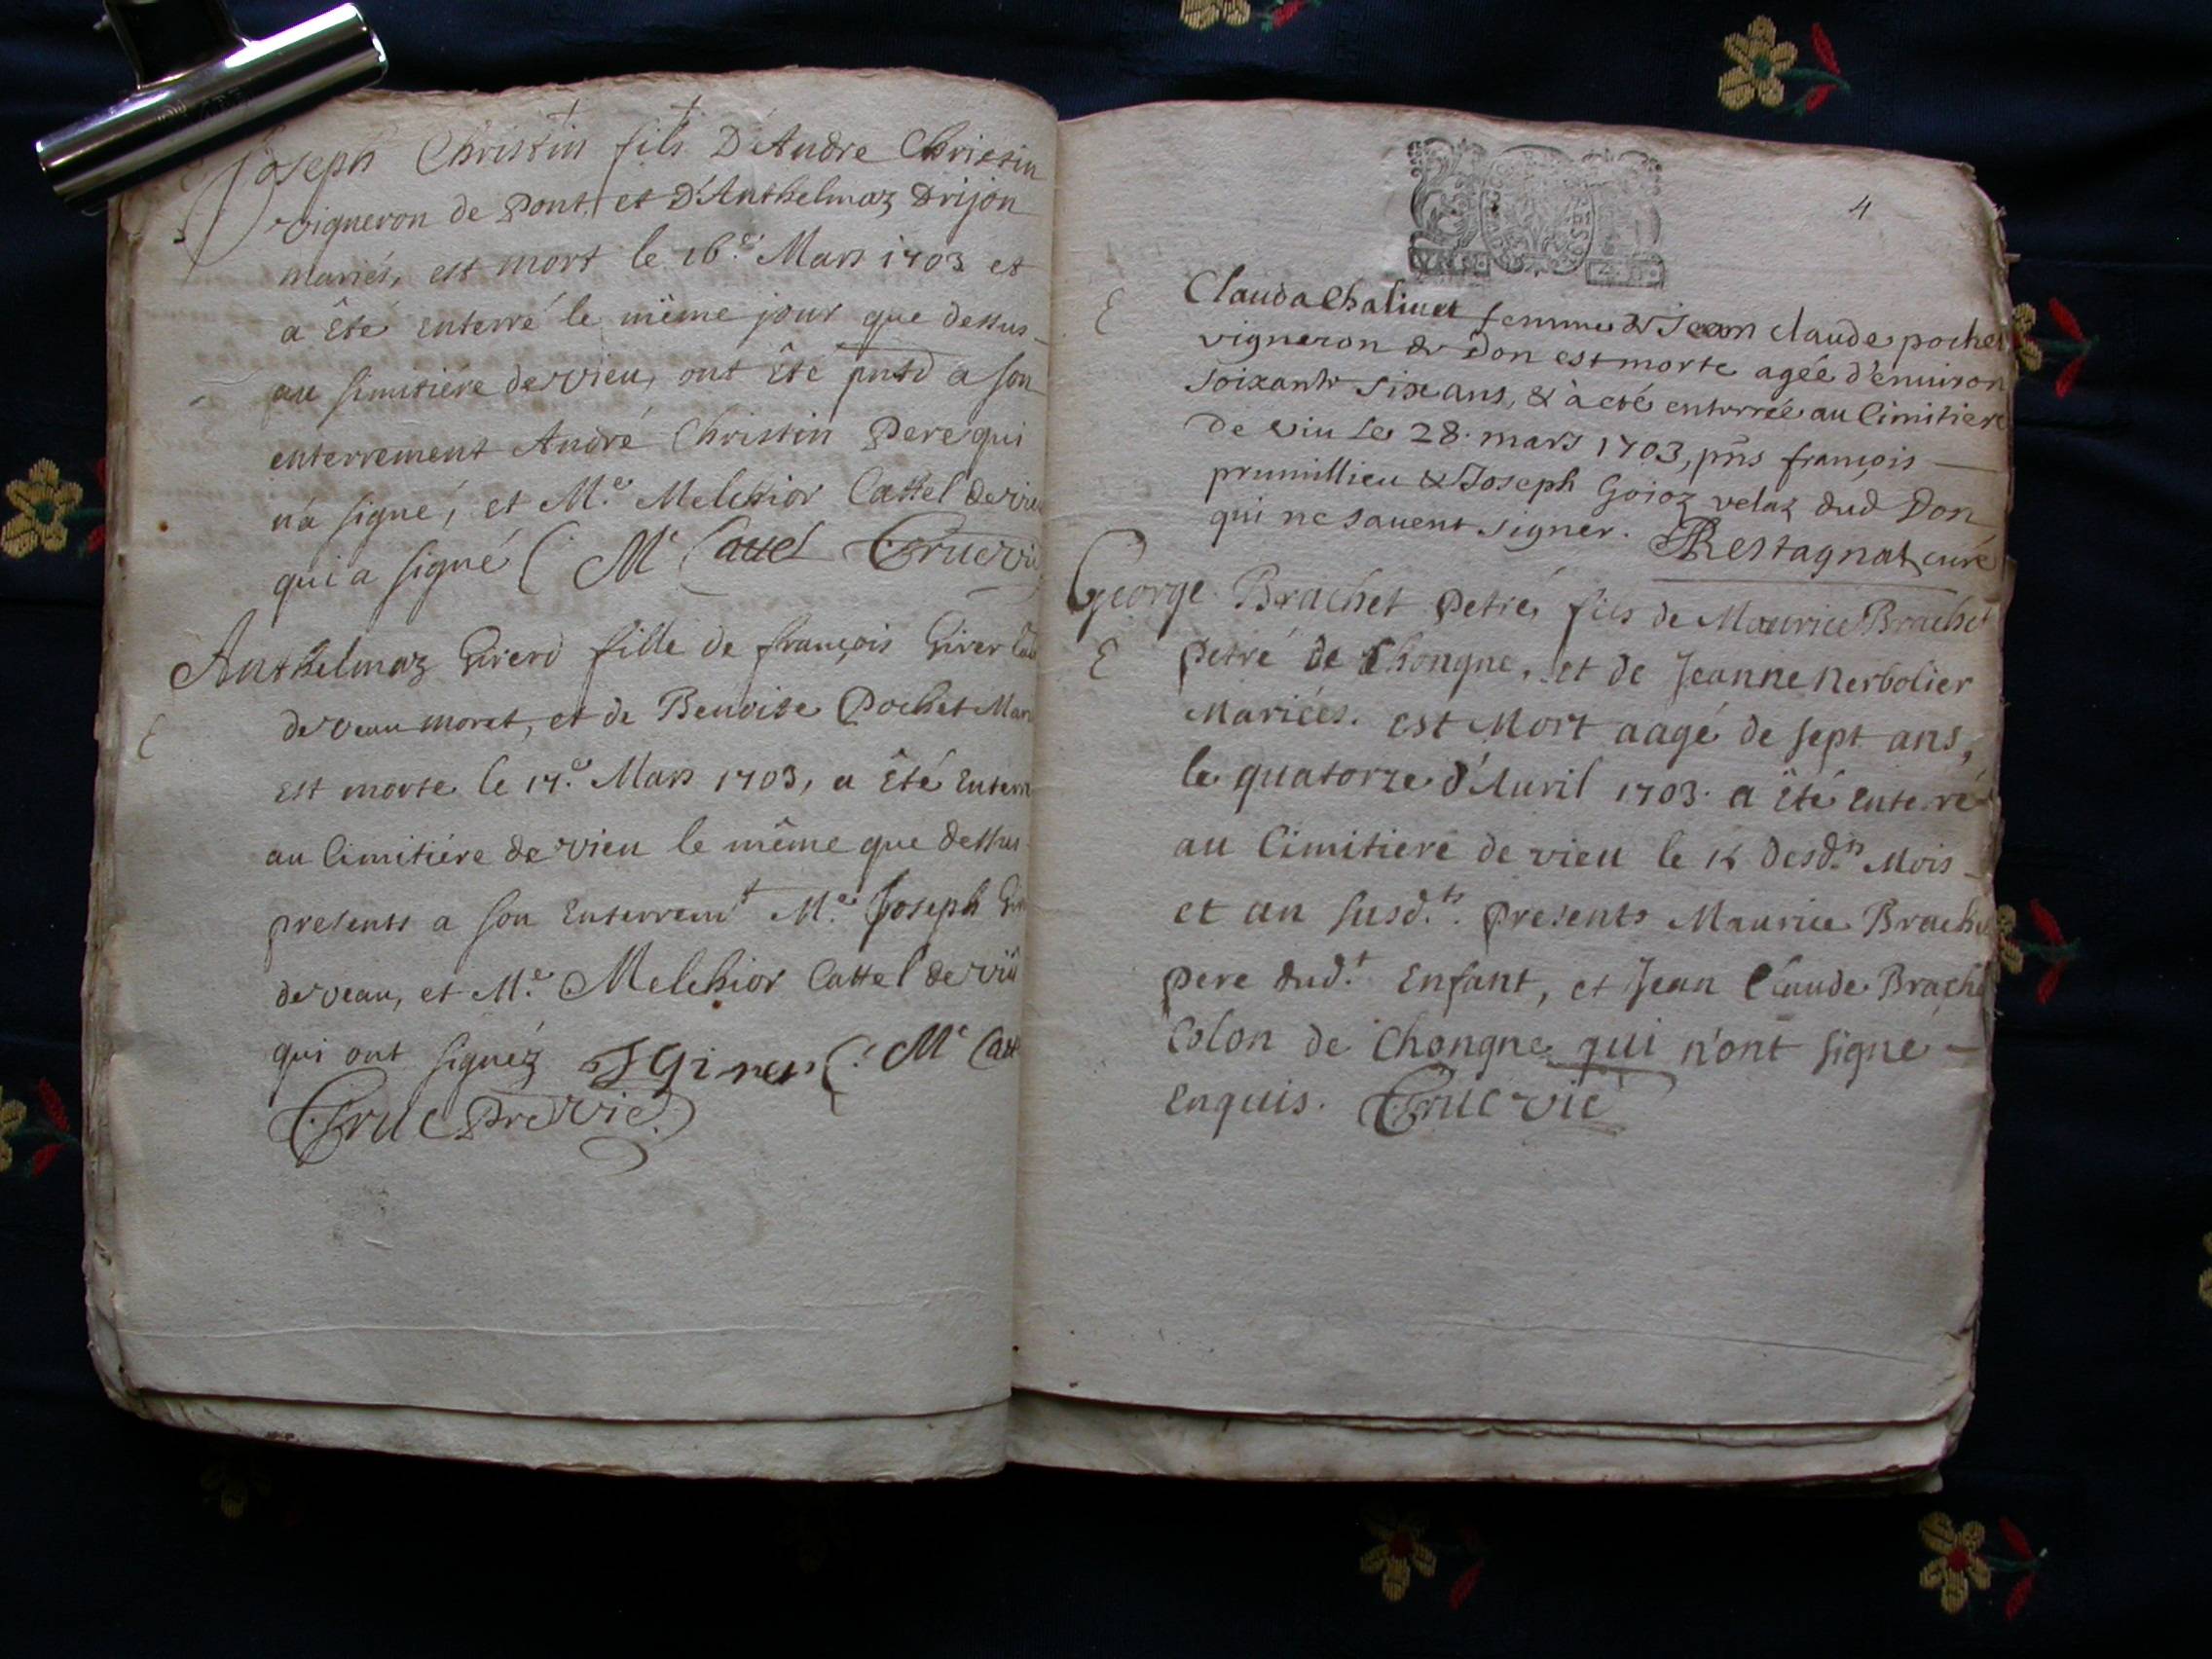 Joseph Christin fils D'Andre Christin
vigneron de Pont, et D'Anthelmaz Drijon
mariés, est mort le 16.e Mars 1703 et
a Eté enterré le même jour que dessus
au simitiére de vieu, ont Eté pntd a son
enterrement André Christin Pere qui
n'a signé, et M.e Melchior Cattel de vieu
qui a signé M.e Cattel Truc vic
Anthelmaz Girerd fille de françois Girer
de veau moret, et de Benoite Pochet Mar
est morte le 17.e Mars 1703, a Eté Enterr
au Cimitiére de vieu le même que dessus
presents a son Enterremt M.e Joseph Gir
de veau, et M.e Melchior Cattel de viu
qui ont signéz J Girer M.e Catt
Truc Pre vic.
4
Clauda Chalinet femme de Jean claude pochet
vigneron de Don est morte agée d'enuiron
soixante six ans, & à eté enterrée au Cimitiere
De viu Le 28. mars 1703, pns françois
prumillieu & Joseph Goioz velaz dud Don
qui ne sauent signer. Restagnat curé
George Brachet petré, fils de Maurice Brachet
petré de Chongne, et de Jeanne Nerbolier
Mariées. est Mort aagé de sept ans,
le quatorze d'Auril 1703. a Eté Enterré
au Cimitiere de vieu le 15 desd.ts Mois
et an susd.ts. presents Maurice Brache
pere dud.t Enfant, et Jean Claude Brache
Colon de Chongne qui n'ont signe
Enquis. Truc vic